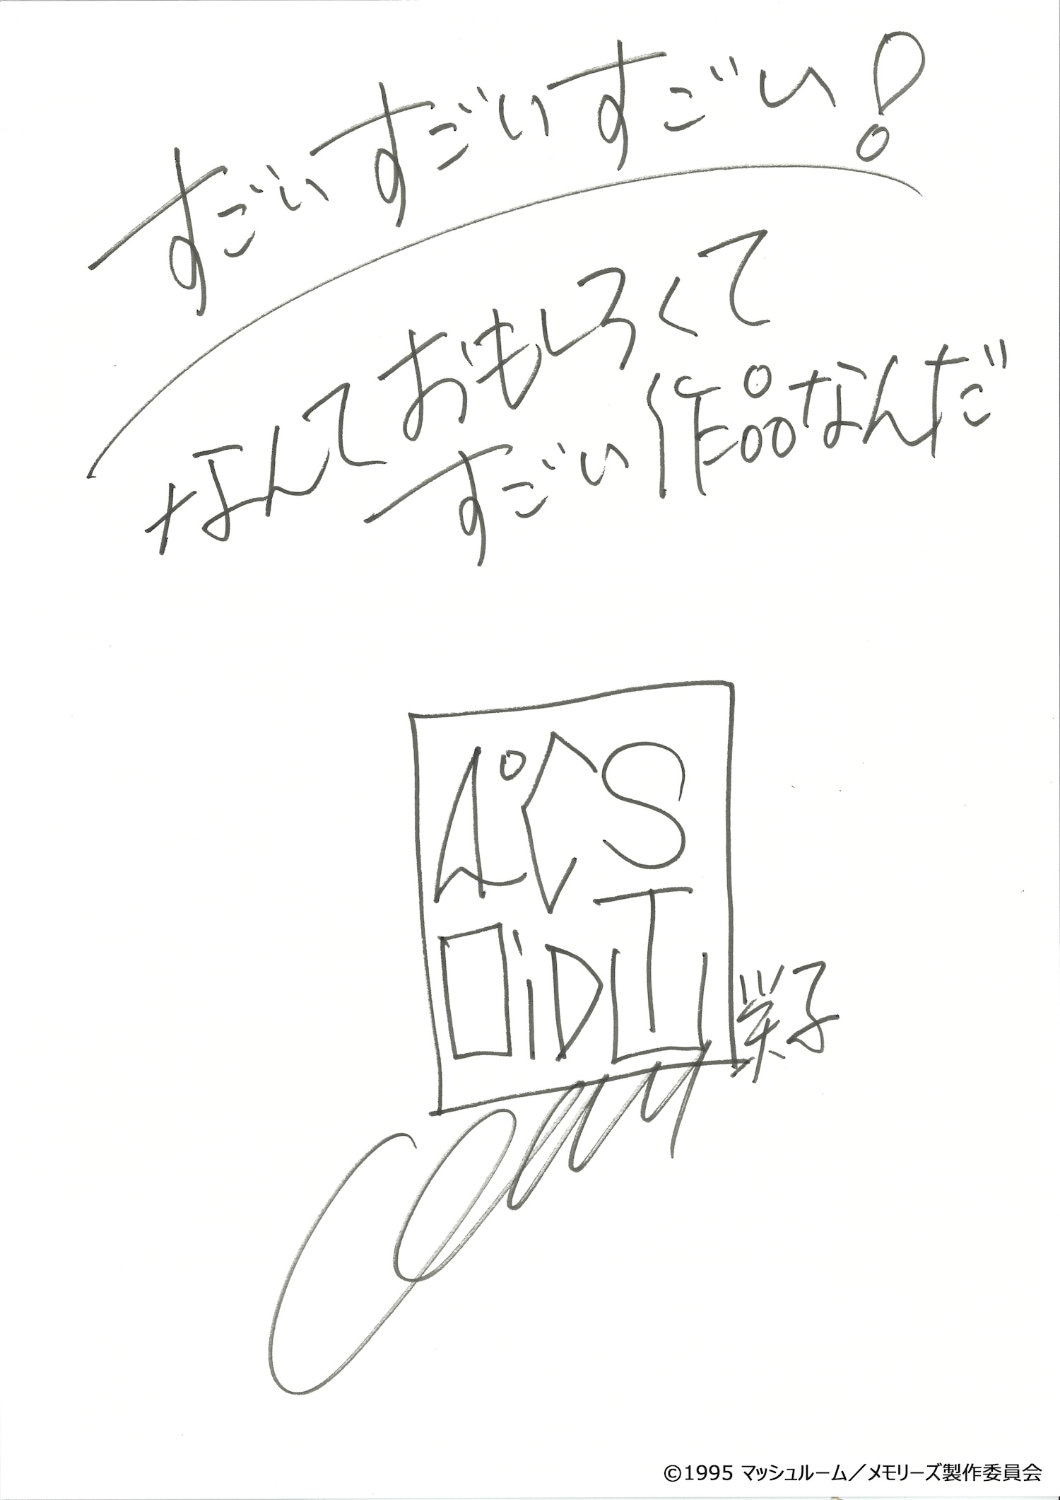 すごいすごいすごい!
なんておもしろくて
すごい作品なんだ
栄子
©1995 マッシュルーム／メモリーズ製作委員会